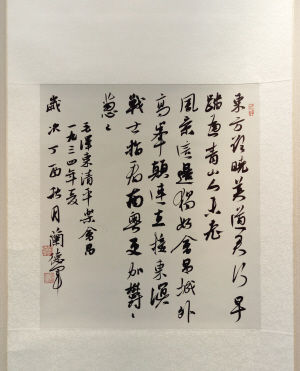 東方欲曉莫道君行早
踏遍青山人未老
風景這邊獨好會昌城外
高峰顛連直接東溟
戰士指看南粤更加欝〻
葱〻
毛澤東清平樂會昌
一九三四年夏
歲次丁酉秋月蘭德軍